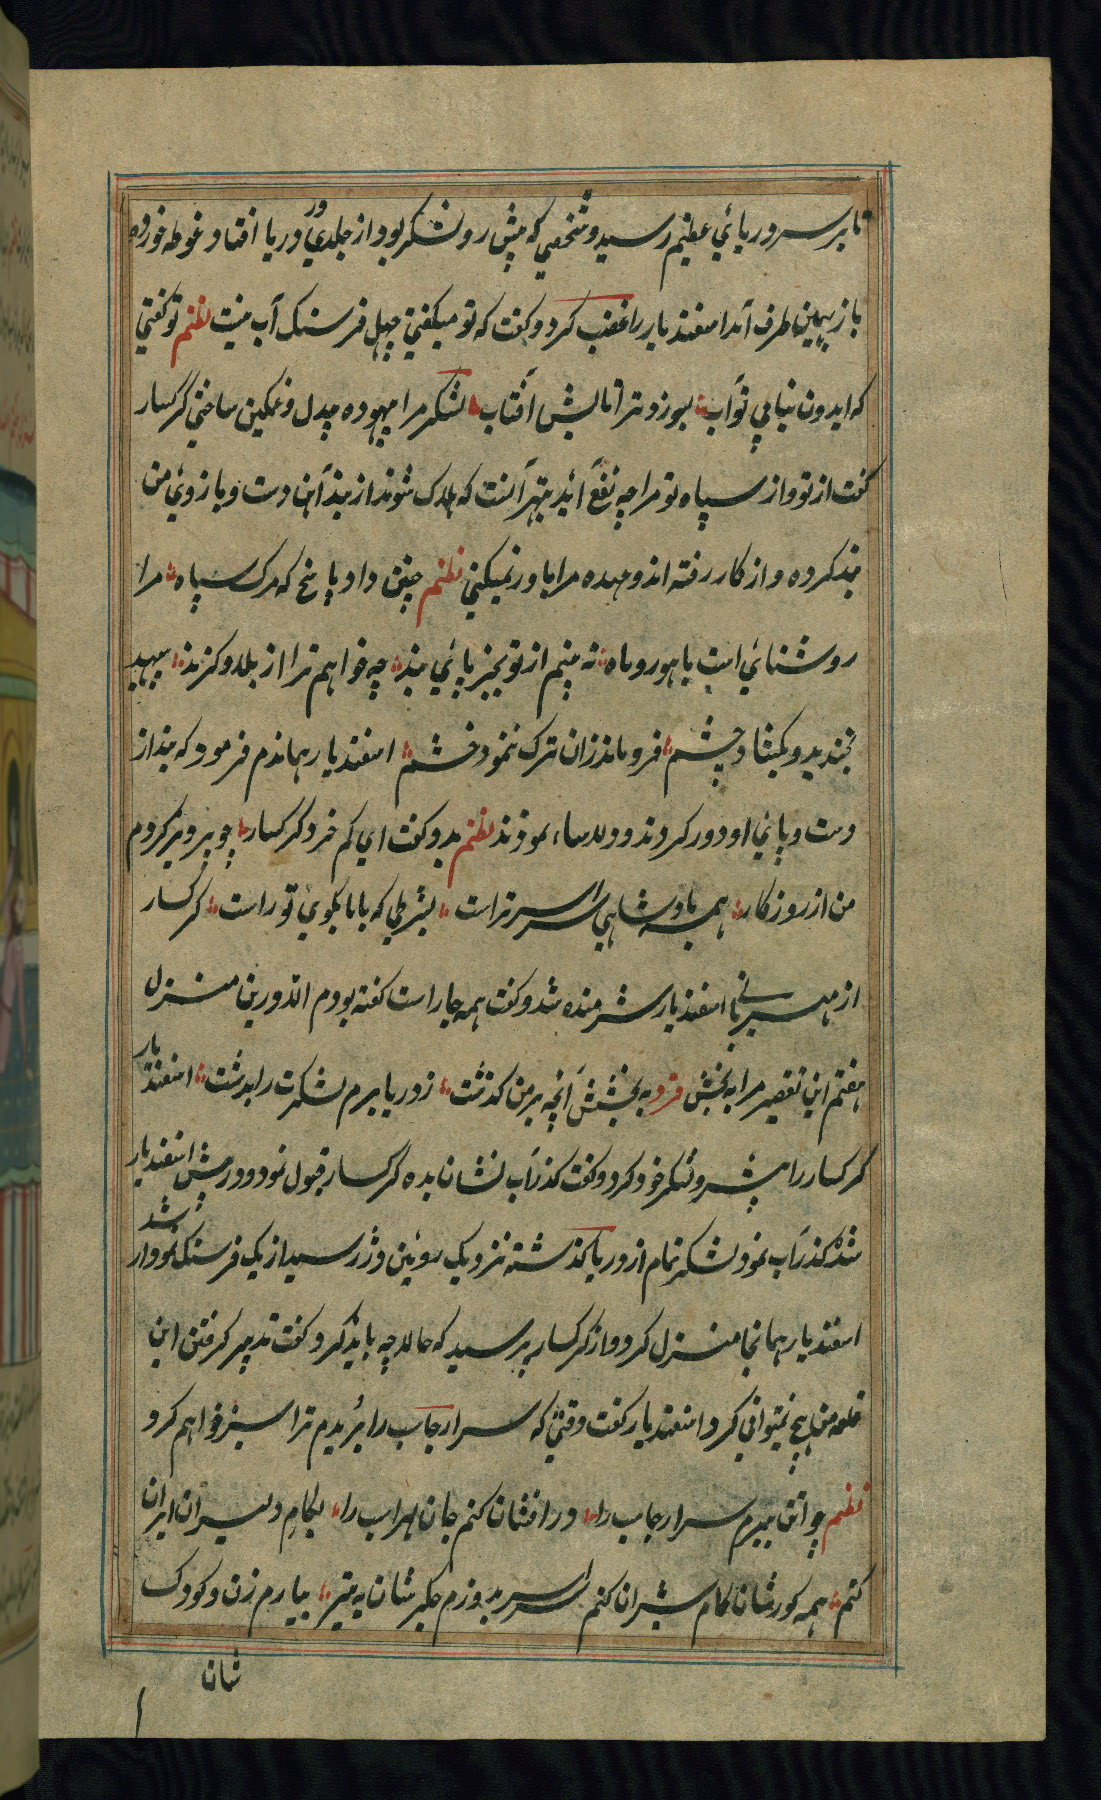 تا بر سر دریائي عظیم رسید و شخصي که پیش رو لشکر بود از جلدي در دریا افتاد و غوطه خورده
باز بهمین طرف آمد اسفندیار را غضب کرد و کفت که تو میکفتي چهل فرسنک آب نیست نظم تو کفتي
که ایدون نیابي تو آب بسوزد ترا تابش آفتاب لشکر مرا بیهوده بیدل و غمکین ساختي کرکسار
کفت از تو و از سپاه تو مرا چه نفع آید بهتر آنست که هلاک شوند از بند آهن دست و بازوئي من
بند کرده و از کار رفته اند وعده مرا باور نمیکني نظم چنین داد پاسخ که مرک سپاه مرا
روشنائي است با هور و ماه نه بینم از تو بجز پائي بند چه خواهم ترا از بلا و کزند سپهبد
بخندید و بکشاد چشم فرو ماند زان ترک ننمود خشم اسفندیار هماندم فرمود که بند از
دست و پائي او دور کردند و دلاسا نمودند نظم بدو کفت اي کم خرد کرکسار چو پیروز کردم
من از روزکار همه پادشاهي سراسر تراست بشرطي که با ما بکوئي تو راست کرکسار
از مهرباني اسفندیار شرمنده شد و کفت همه جا راست کفته بودم اندرین منزل
هفتم این تقصیر مرا به بخش فرد به بخشش آنچه بر من کذشت ز دریا برم لشکرت را بدشت اسفندیار
کرکسار را پیشرو لشکر خود کرد و کفت کذر آب نشان بده کرکسار قبول نمود و در پیش اسفندیار
شده کذر آب نمود لشکر تمام از دریا کذشته نزدیک روئین دژ رسید از یک فرسنک نمودار شد
اسفندیار همانجا منزل کرد و از کرکسار پرسید که حالا چه باید کرد کفت تدبیر کرفتن این
قلعه من هیچ نمیتواني کرد اسفندیار کفت وقتي که سر ارجاب را بریدم ترا سبز خواهم کرد
نظم چو آتش ببرم سر ارجاب را درافشان کنم جان لهراب را بکام دلیران ایران
کنم همه کورشان کام شیران کنم سراسر بدوزم جکرشان به تیر بیارم زن و کودک
شان